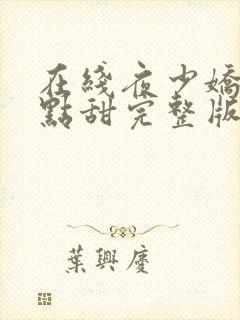 在綫夜少嬌
點甜完整版
葉興慶